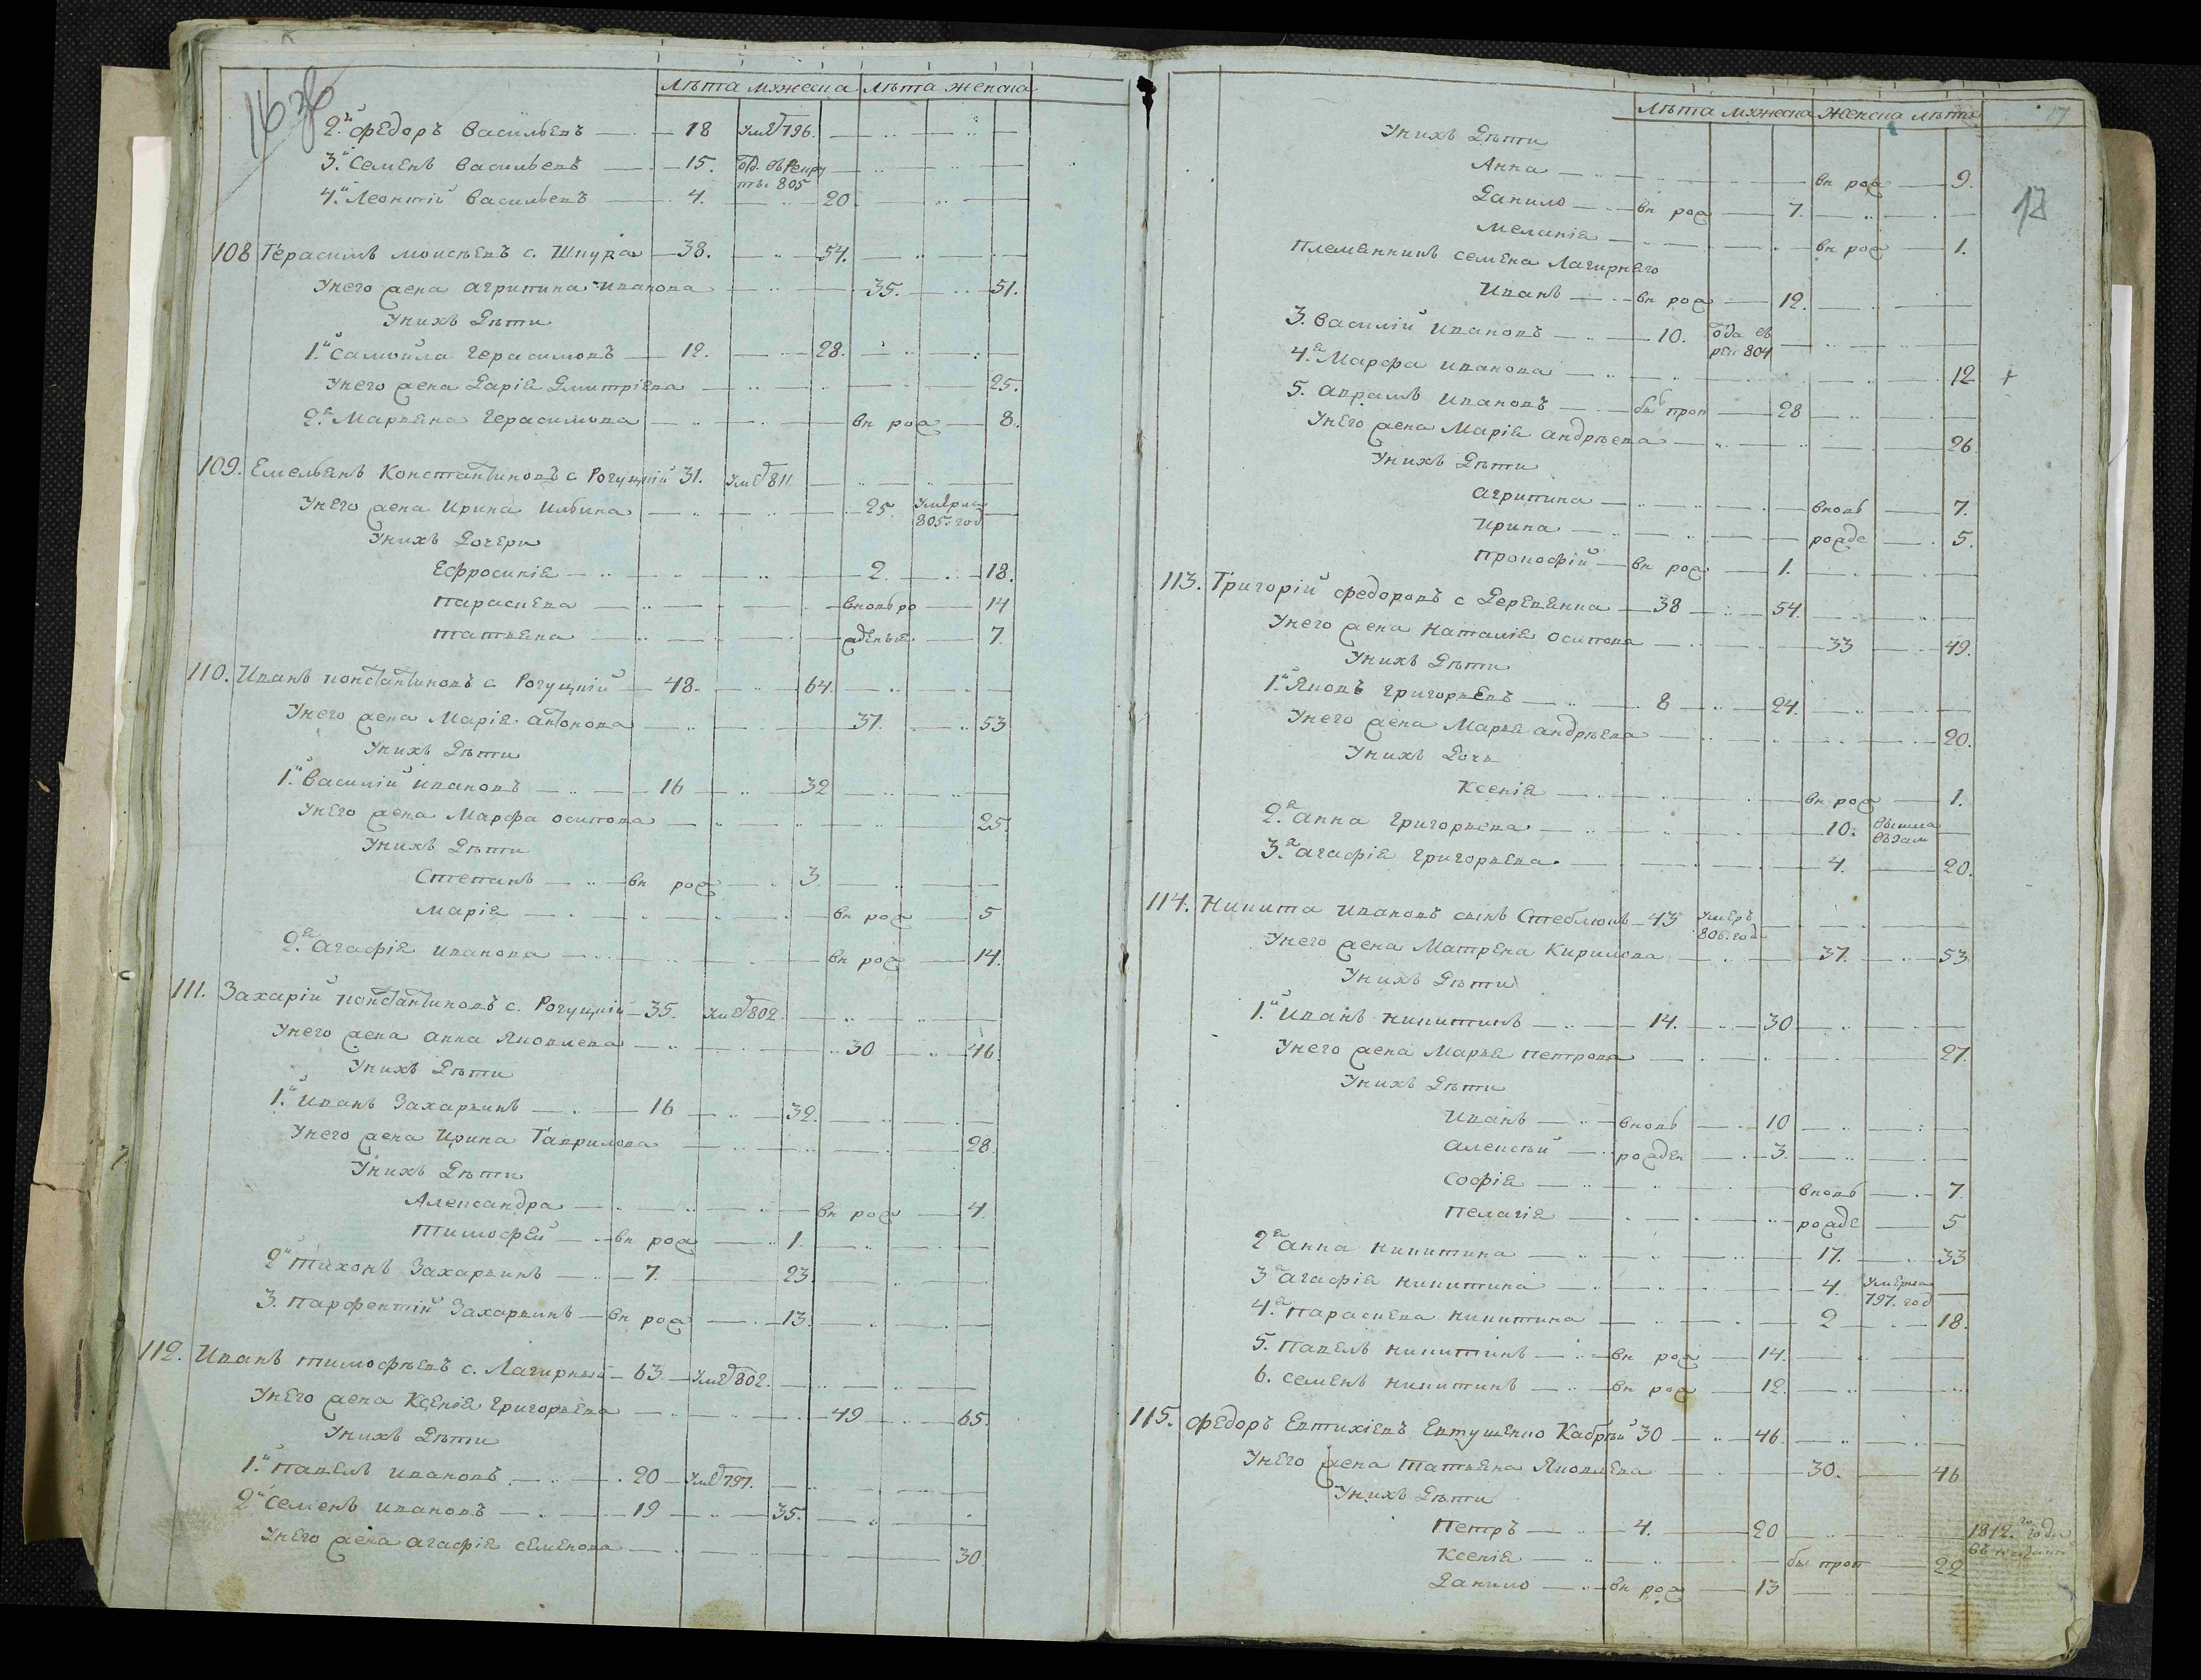 лѣта мужеска лѣта женска
2.й Федоръ Васильевъ 18 уме 796.
3.й Семенъ Васильевъ 15. отд. въ рекру
ты 805
4.й Леонтий Васильевъ 4. 20
108 Герасимъ Моисѣевъ с. Шпура 38. 54.
У него жена Агрипина Иванова 35. 51.
У нихъ дѣти
1.й Самойла Герасимовъ 12. 28.
У него жена Дарія Дмитріева 25.
2.я Марьяна Герасимова вн рож 8.
109. Емельянъ Константиновъ с Рогуцкій 31. уме 811
У него жена Ирина Ильина 25. умерла
805. год
У нихъ дочери
Ефросинія 2. 18.
Параскева вновь ро 14
Татьяна жденые 7
110. Иванъ Константиновъ с Рогуцкій 48. 64.
У него жена Марія Антонова 37. 53
У нихъ дѣти
1.й Василій Ивановъ 16 32
У него жена Марфа Осипова 25.
У нихъ дѣти
Степанъ вн рож 3.
Марія вн рож 5
2.я Агафія Иванова вн рож 14.
111. Захарій Константиновъ с. Рогуцкій 35. уме 802.
У него жена Анна Яковлева 30 46.
У нихъ дѣти
1.й Иванъ Захарьинъ 16 32.
У него жена Ирина Гаврилова 28.
У нихъ дѣти
Александра вн рож 4
Тимофей вн рож 1.
2й Тихонъ Захарьинъ 7. 23.
3. Парфентій Захарьинъ вн рож 13.
112. Иванъ Тимофѣевъ с. Лагирный 63. уме 802.
У него жена Ксенія Григорьева 49 65.
У нихъ дѣти
1.й Павелъ Ивановъ 20 уме 797.
2й Семенъ Ивановъ 19 35.
У него жена Агафія Семенова 30
лѣта мужеска женска лѣта
17
У нихъ дѣти
Анна вн рож 9.
Данило вн рож 7.
Меланія вн рож 1.
Племянникъ Семена Лагирнего
Иванъ вн рож 12.
3. Василій Ивановъ 10. отда въ
рек 804
4.я Марфа Иванова 12 +
5. Аврамъ Ивановъ бы проп 28
У него жена Марія Андрѣева 26
У нихъ дѣти
Агрипина вновь 7.
Ирина рожде 5.
Прокофій вн рож 1.
113. Григорій Федоровъ с Деревянка 38 54.
У него жена Наталія Осипова 33 49.
У нихъ дѣти
1.й Яковъ Григорьевъ 8 24.
У него жена Марья Андрѣева 20.
У нихъ дочь
Ксенія вн рож 1.
2.я Анна Григорьева 10. вышла
въ зам
3.я Агафія Григорьева 4. 20.
114. Никита Ивановъ сынъ Стеблюкъ 43 умеръ
806. года
У него жена Матрена Кирилова 37. 53
У нихъ дѣти
1.й Иванъ Никитинъ 14. 30
У него жена Марья Петрова 27.
У нихъ дѣти
Иванъ вновь 10
Алексѣй рожден 3.
Софія вновь 7.
Пелагія рожде 5
2я Анна Никитина 17. 33
3я Агафія Никитина 4. умерла
797. год
4.я Параскева Никитина 2 18.
5. Павелъ Никитинъ вн рож 14.
6. Семенъ Никитинъ вн рож 12.
115. Федоръ Евтихіевъ Евтушенко 30 46.
У него жена Татьяна Яковлева 30. 46
У нихъ дѣти
Петръ 4. 20 1812.го года
Ксенія бы проп 22
Данило вн рож 13